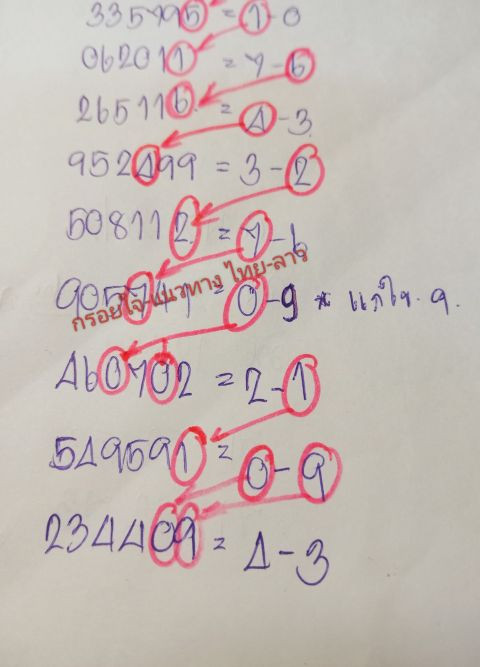 335795 = 1-0
062011 = 7-6
265116 = 4-3
952499 = 3-2
508112 = 7-6
905747 = 0-9 * แก้ไข 9.
กรอยใจ-แนวทาง ไทย-ลาว
460702 = 2-1
549591 = 0-9
234409 = 4-3